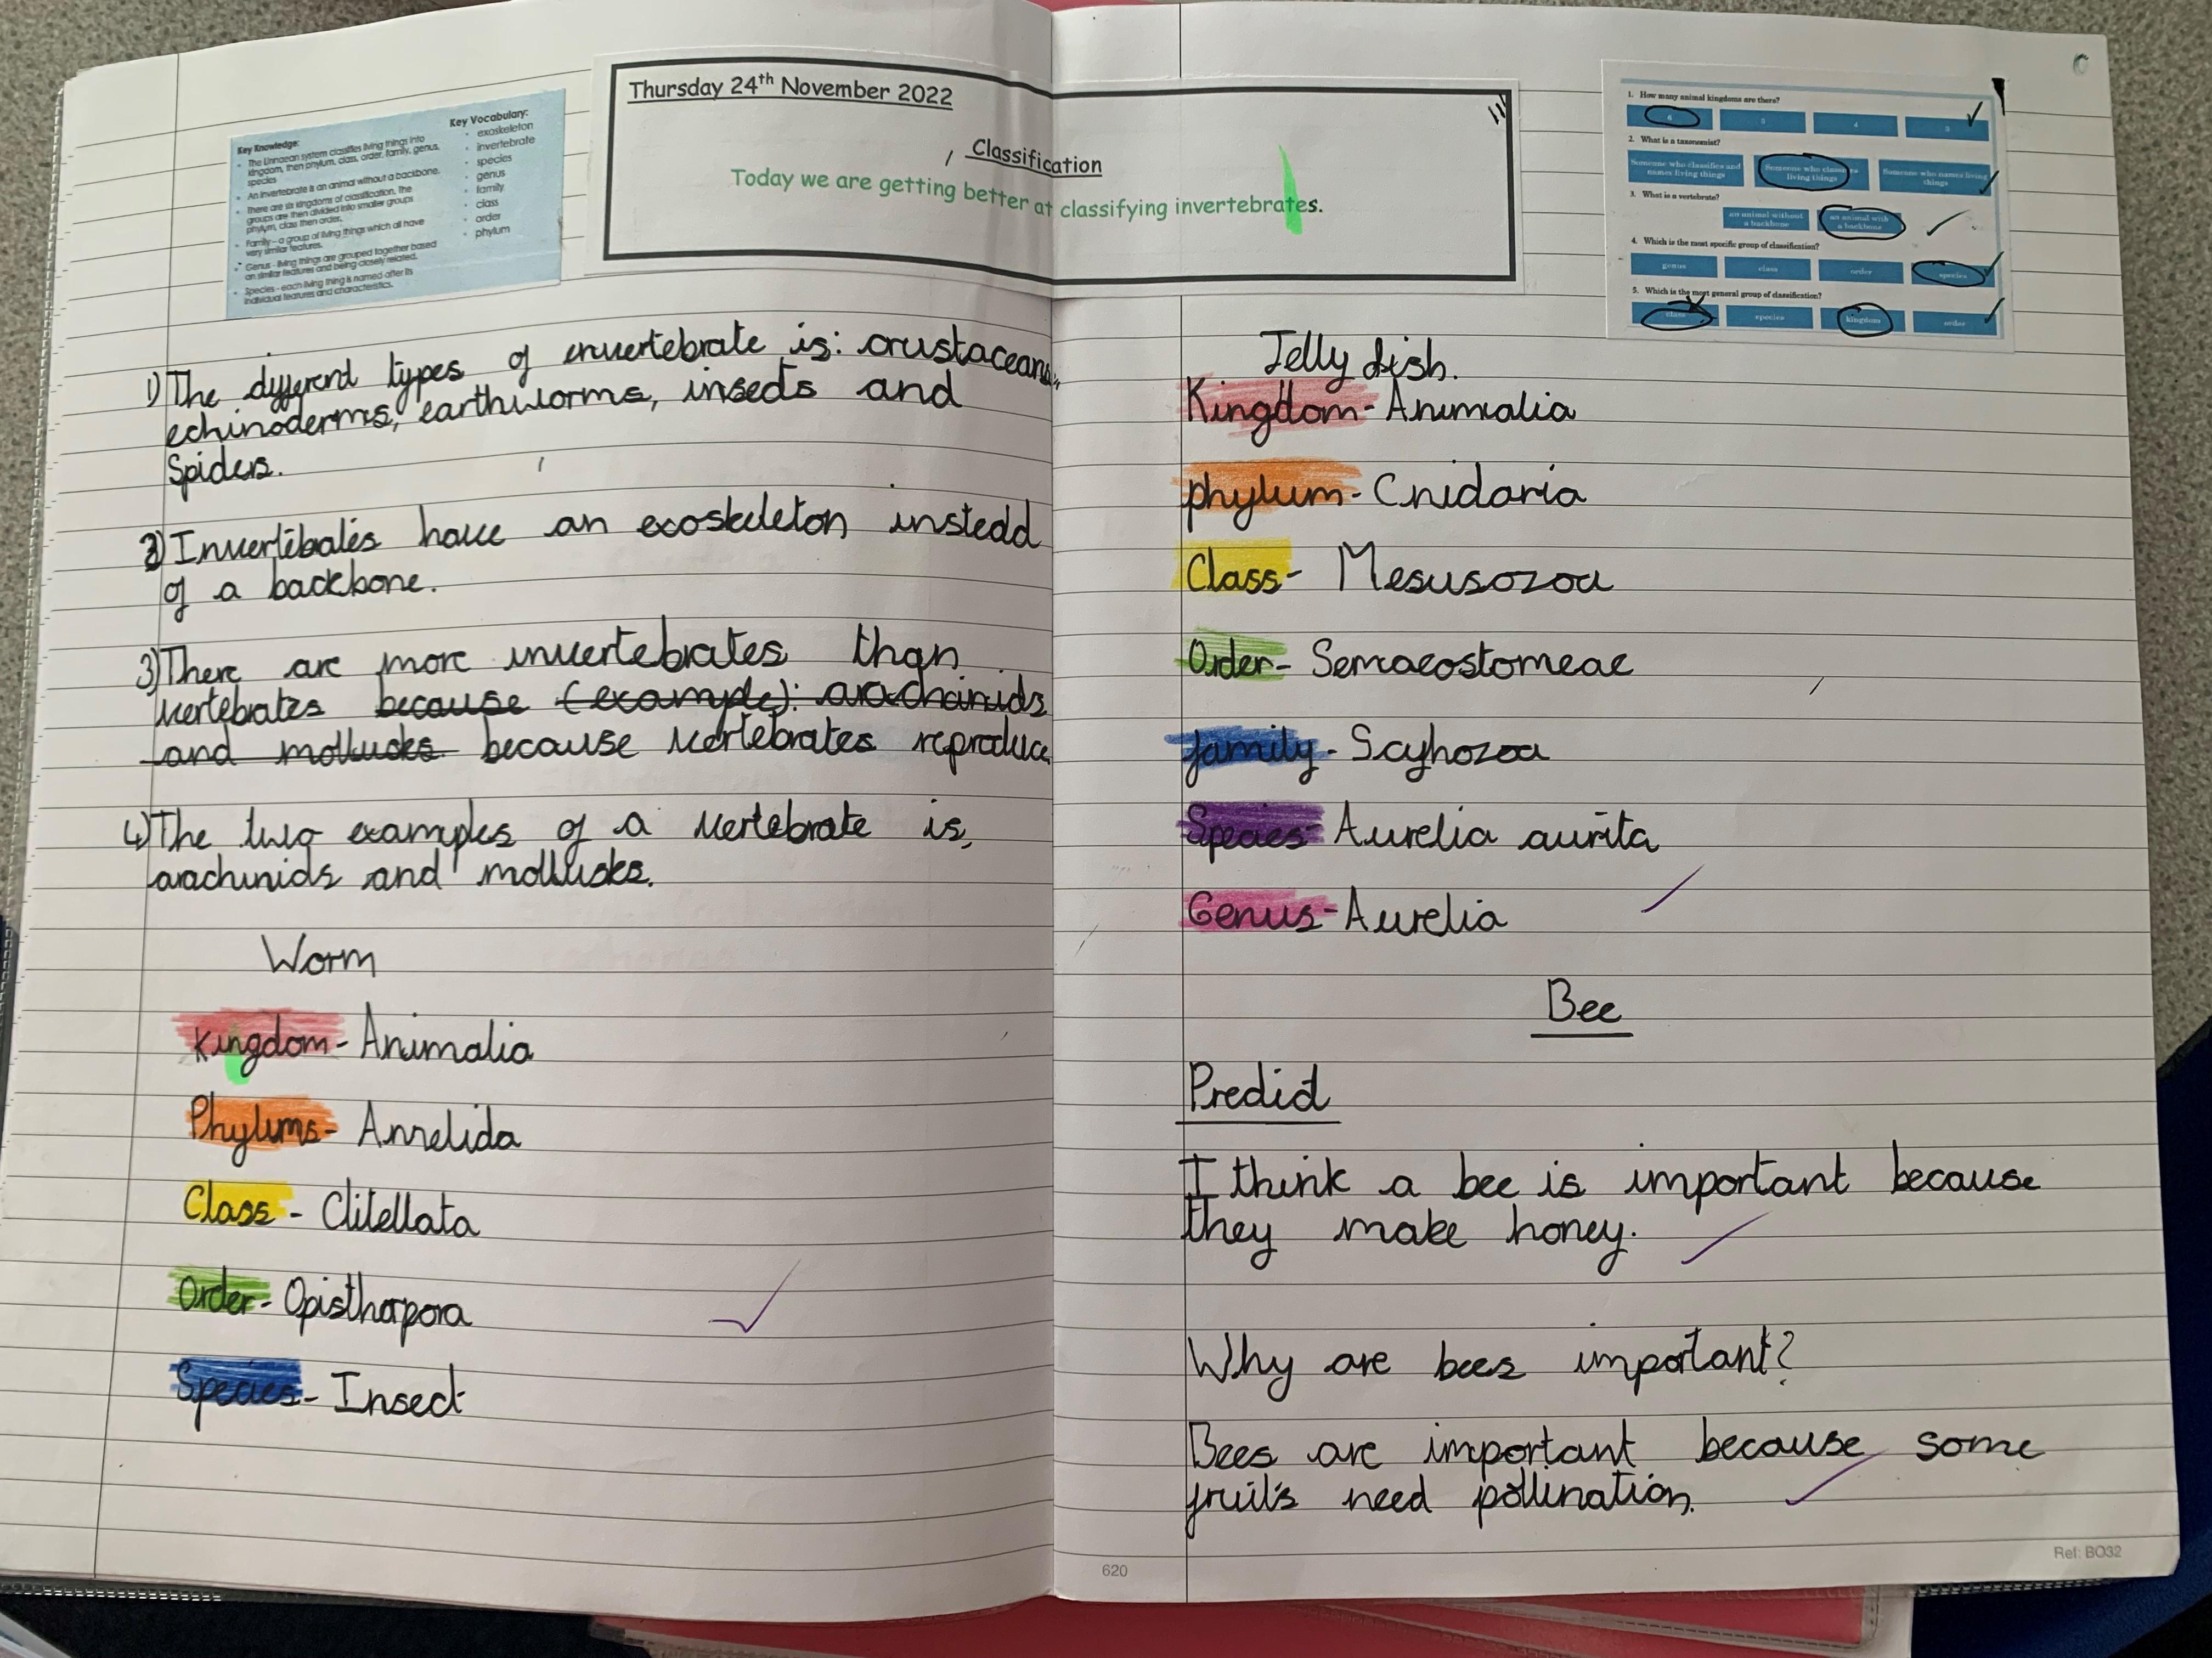 Key Knowledge:
• The Linnaean system classifies living things into
kingdom, then phylum, class, order, family, genus,
species
• An invertebrate is an animal without a backbone.
• There are six kingdoms of classification. The
groups are then divided into smaller groups
phylum, class then order.
• Family – a group of living things which all have
very similar features.
• Genus - living things are grouped together based
on similar features and being closely related.
• Species - each living thing is named after its
individual features and characteristics.
Key Vocabulary:
• exoskeleton
• invertebrate
• species
• genus
• family
• class
• order
• phylum
Thursday 24th November 2022
Classification
Today we are getting better at classifying invertebrates.
1) The different types of invertebrate is: crustaceans,
echinoderms, earthworms, insects and
Spiders.
2) Invertibales have an exoskeleton instead
of a backbone.
3) There are more invertebrates than
vertebrates because (example): arachainids
and mollucks. because vertebrates reproduce
4) The two examples of a vertebrate is,
arachinids and mollusks.
Worm
Kingdom - Animalia
Phylums - Annelida
Class - Clitellata
Order - Opisthorpora
Species - Insect
1. How many animal kingdoms are there?
6 5 4 3
2. What is a taxonomist?
Someone who classifies and
names living things
Someone who classifies
living things
Someone who names living
things
3. What is a vertebrate?
an animal without
a backbone
an animal with
a backbone
4. Which is the most specific group of classification?
genus class order species
5. Which is the most general group of classification?
class species kingdom order
Jelly fish.
Kingdom - Animalia
phylum - Cnidaria
Class - Mesusozoa
Order - Semaeostomeae
family - Scyhozoa
Species - Aurelia aurita
Genus - Aurelia
Bee
Predict
I think a bee is important because
they make honey.
Why are bees important?
Bees are important because some
fruits need pollination.
620
Ref: BO32